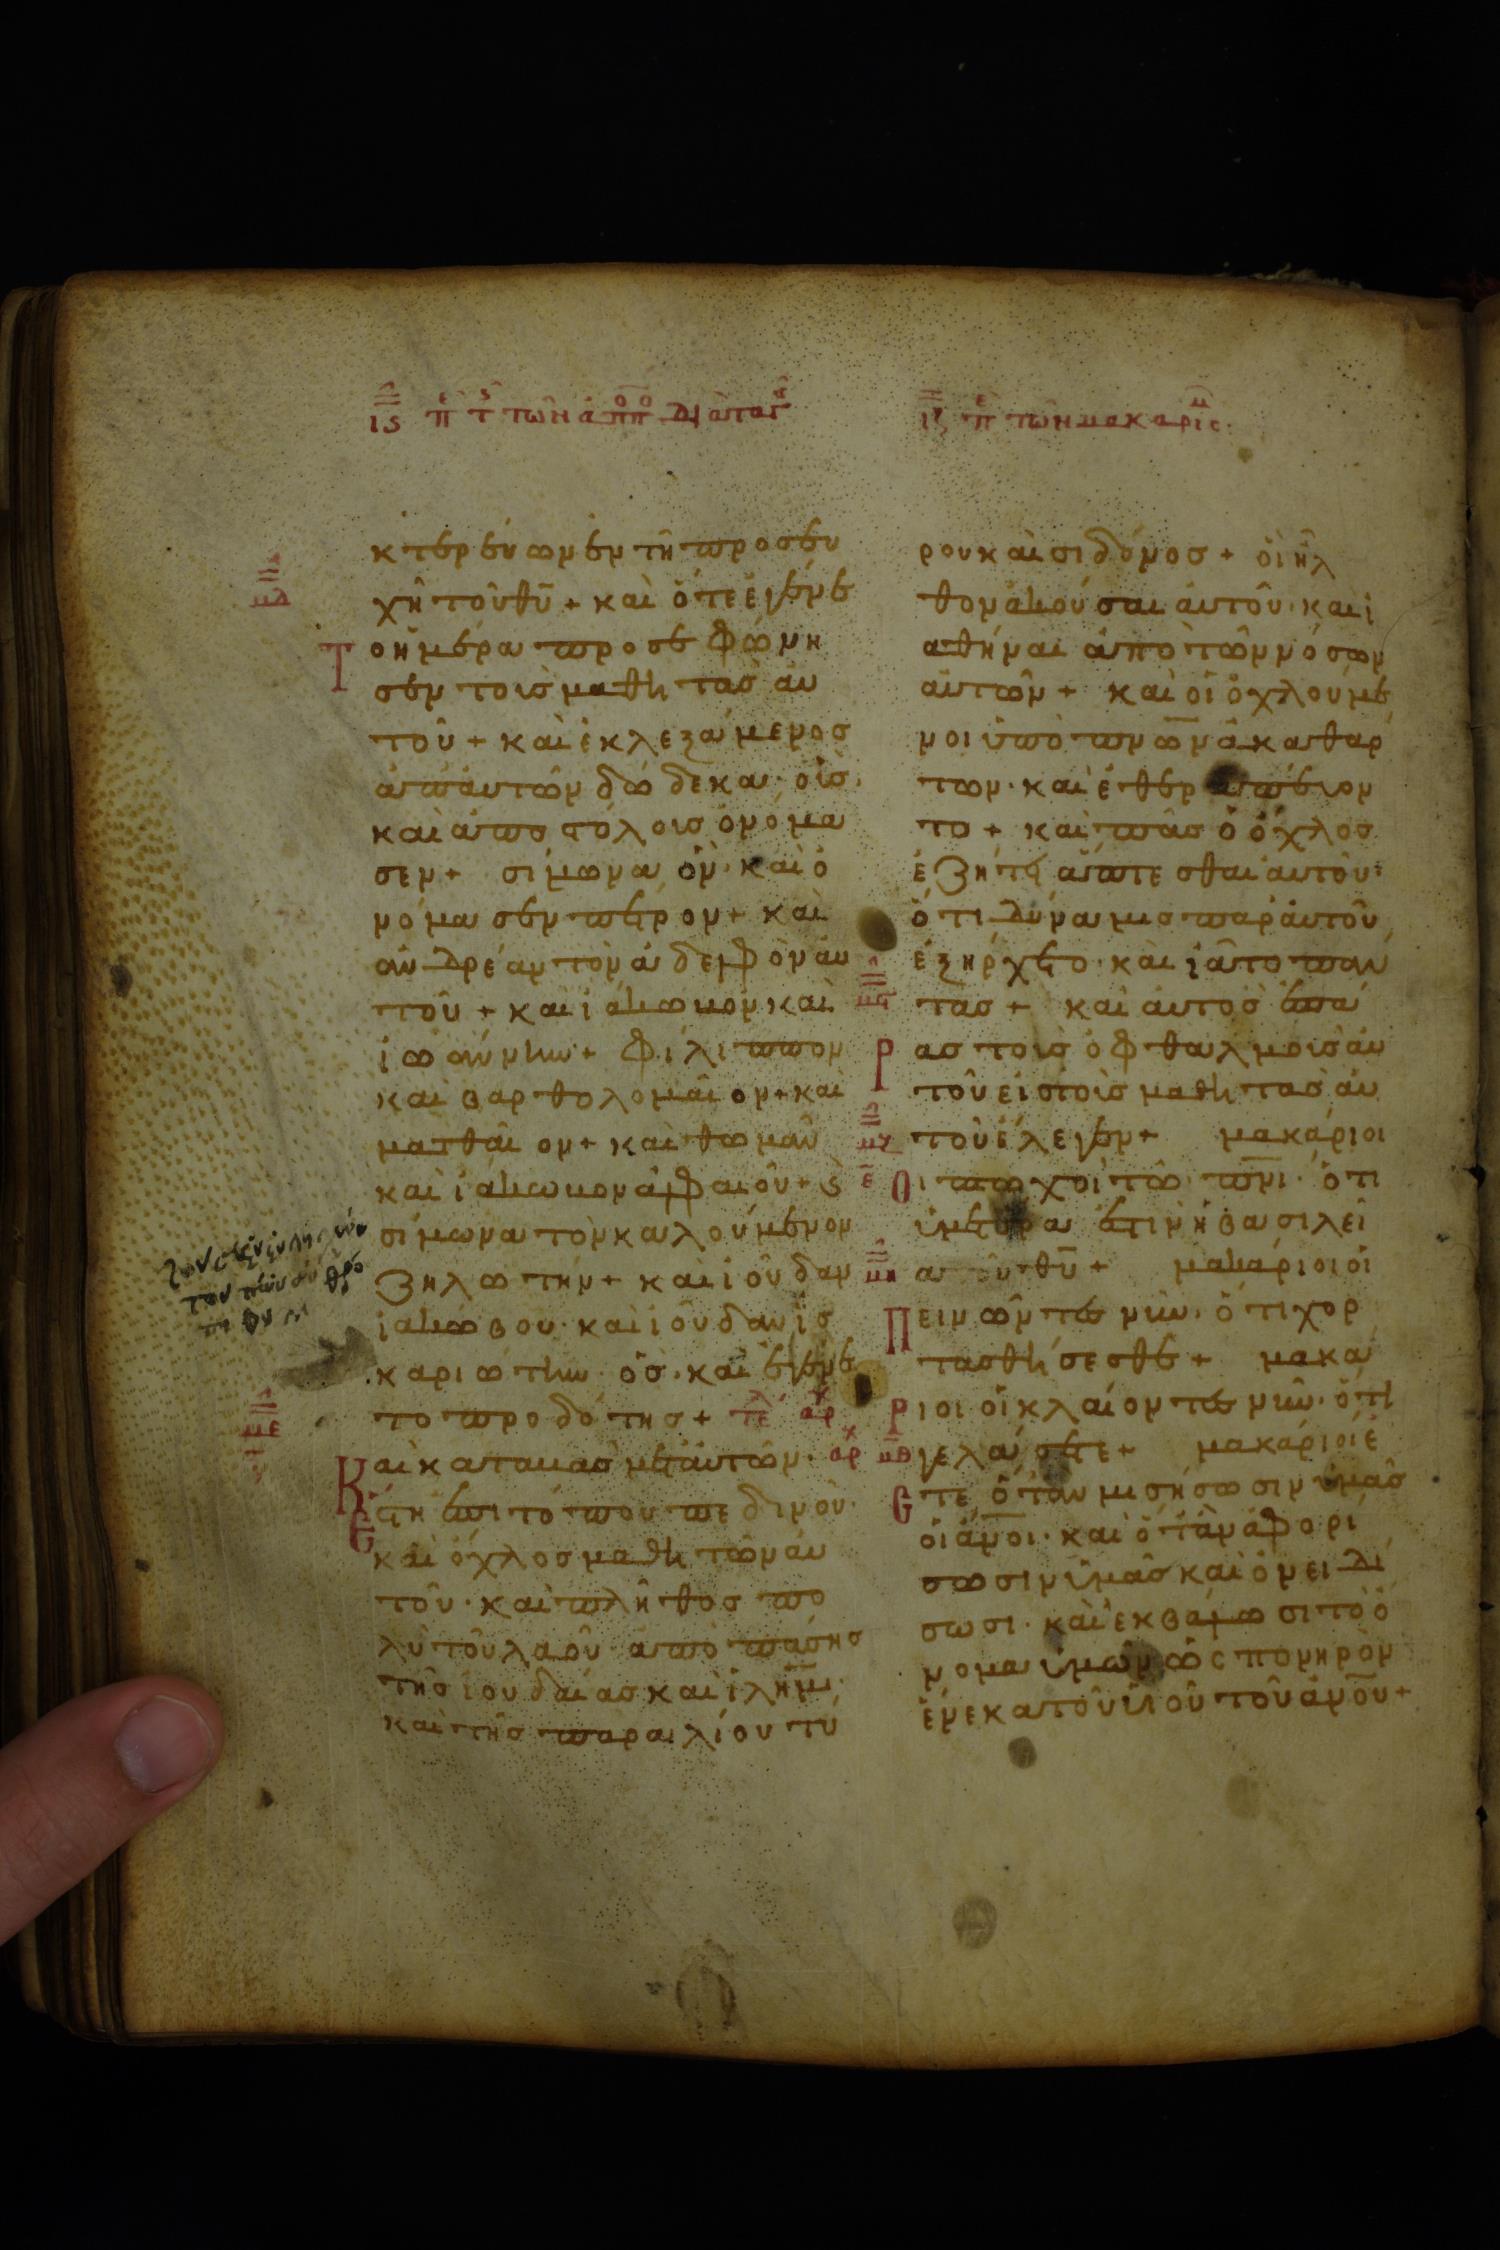 ις πε τς των αππο διαταγ
κτερεύωμεν τῆ προσευ
χῆ τοῦ θυ + καὶ ὅτε ἐγένε
Το ἡμέρα προσεφώνη
σεν τοὶσ μαθητὰσ αὐ
τοῦ + καὶ ἐκλεξάμενοσ
ἀπ' ἀυτῶν δώδεκα· οἷσ
καὶ ἀποστόλοισ ὀνόμα
σεν + σίμωνα ὃν καὶ ὀ
νόμασεν πέτρον + καὶ
ἀνδρέαν τὸν ἀδελφὸν ἀυ
τοῦ + καὶ ἰάκωκον καὶ
ἰωάννην + φίλιππον
καὶ βαρθολομαῖον + καὶ
ματθαῖον + καὶ θωμᾶν
καὶ ἰάκωκον ἀλφαιοῦ + ϛ
σίμωνα τὸν καλούμενον
ζηλωτήν + καὶ ἰοῦδαν
ἰακώβου· καὶ ἰοῦδαν ἰσ
καριώτην· ὃσ· καὶ ἐγένε
το προδότησ + τελ αρχ
Καὶ καταμὰσ μετ' ἀυτῶν· αρχ
Ἔστη ἐπὶ τόπου πεδινοῦ·
καὶ ὄχλοσ μαθητῶν ἀυ
τοῦ· καὶ πλῆθοσ πο
λὺ τοῦ λαοῦ ἀπὸ πάσησ
τῆσ ἰουδαίασ καὶ ιλημ·
καὶ τῆσ παραλίου τύ
ιζ πε των μακαρισμ
ρου καὶ σιδόνοσ + οἳ ἦλ
θον ἀκούσαι ἀυτοῦ· καὶ ἰ
αθῆναι ἀπὸ τῶν νόσων
ἀυτῶν + καὶ οἱ ὀχλούμε
νοι ὑπὸ πνων ἀκαθάρ
των· καὶ ἐθεραπέυον
το + καὶ πᾶσ ὁ ὄχλοσ
ἐζήτει ἅπτεσθαι ἀυτοῦ·
ὅτι δύναμισ παρ' ἀυτοῦ
ἐξήρχετο· καὶ ἰᾶτο πάν
τασ + καὶ ἀυτὸσ ἐπά
Ρασ τοὶσ ὀφθαλμοὶσ ἀυ
τοῦ εἰσ τοὶσ μαθητὰσ ἀυ
τοῦ ἔλεγεν + μακάριοι
Οι πτωχοὶ τῶ πνι· ὅτι
ὑμετέρα ἐστιν ἡ βασιλεί
α τοῦ θυ + μακάριοι οἱ
Πεινῶντεσ νῦν· ὅτι χορ
τασθήσεσθε + μακά
Ριοι οἱ κλαίοντεσ νῦν· ὅτι
γελάσετε + μακάριοι ἐ
Στε ὅταν μισήσωσιν ὑμᾶσ
οἱ ἄνοι· καὶ ὅταν ἀφορί
σωσιν ὑμᾶσ καὶ ὀνειδί
σωσι· καὶ ἐκβάλωσι τὸ ὄ
νομα ὑμῶν ὡσ πονηρὸν
ἕνεκα τοῦ ὑιοῦ τοῦ ἀνου +